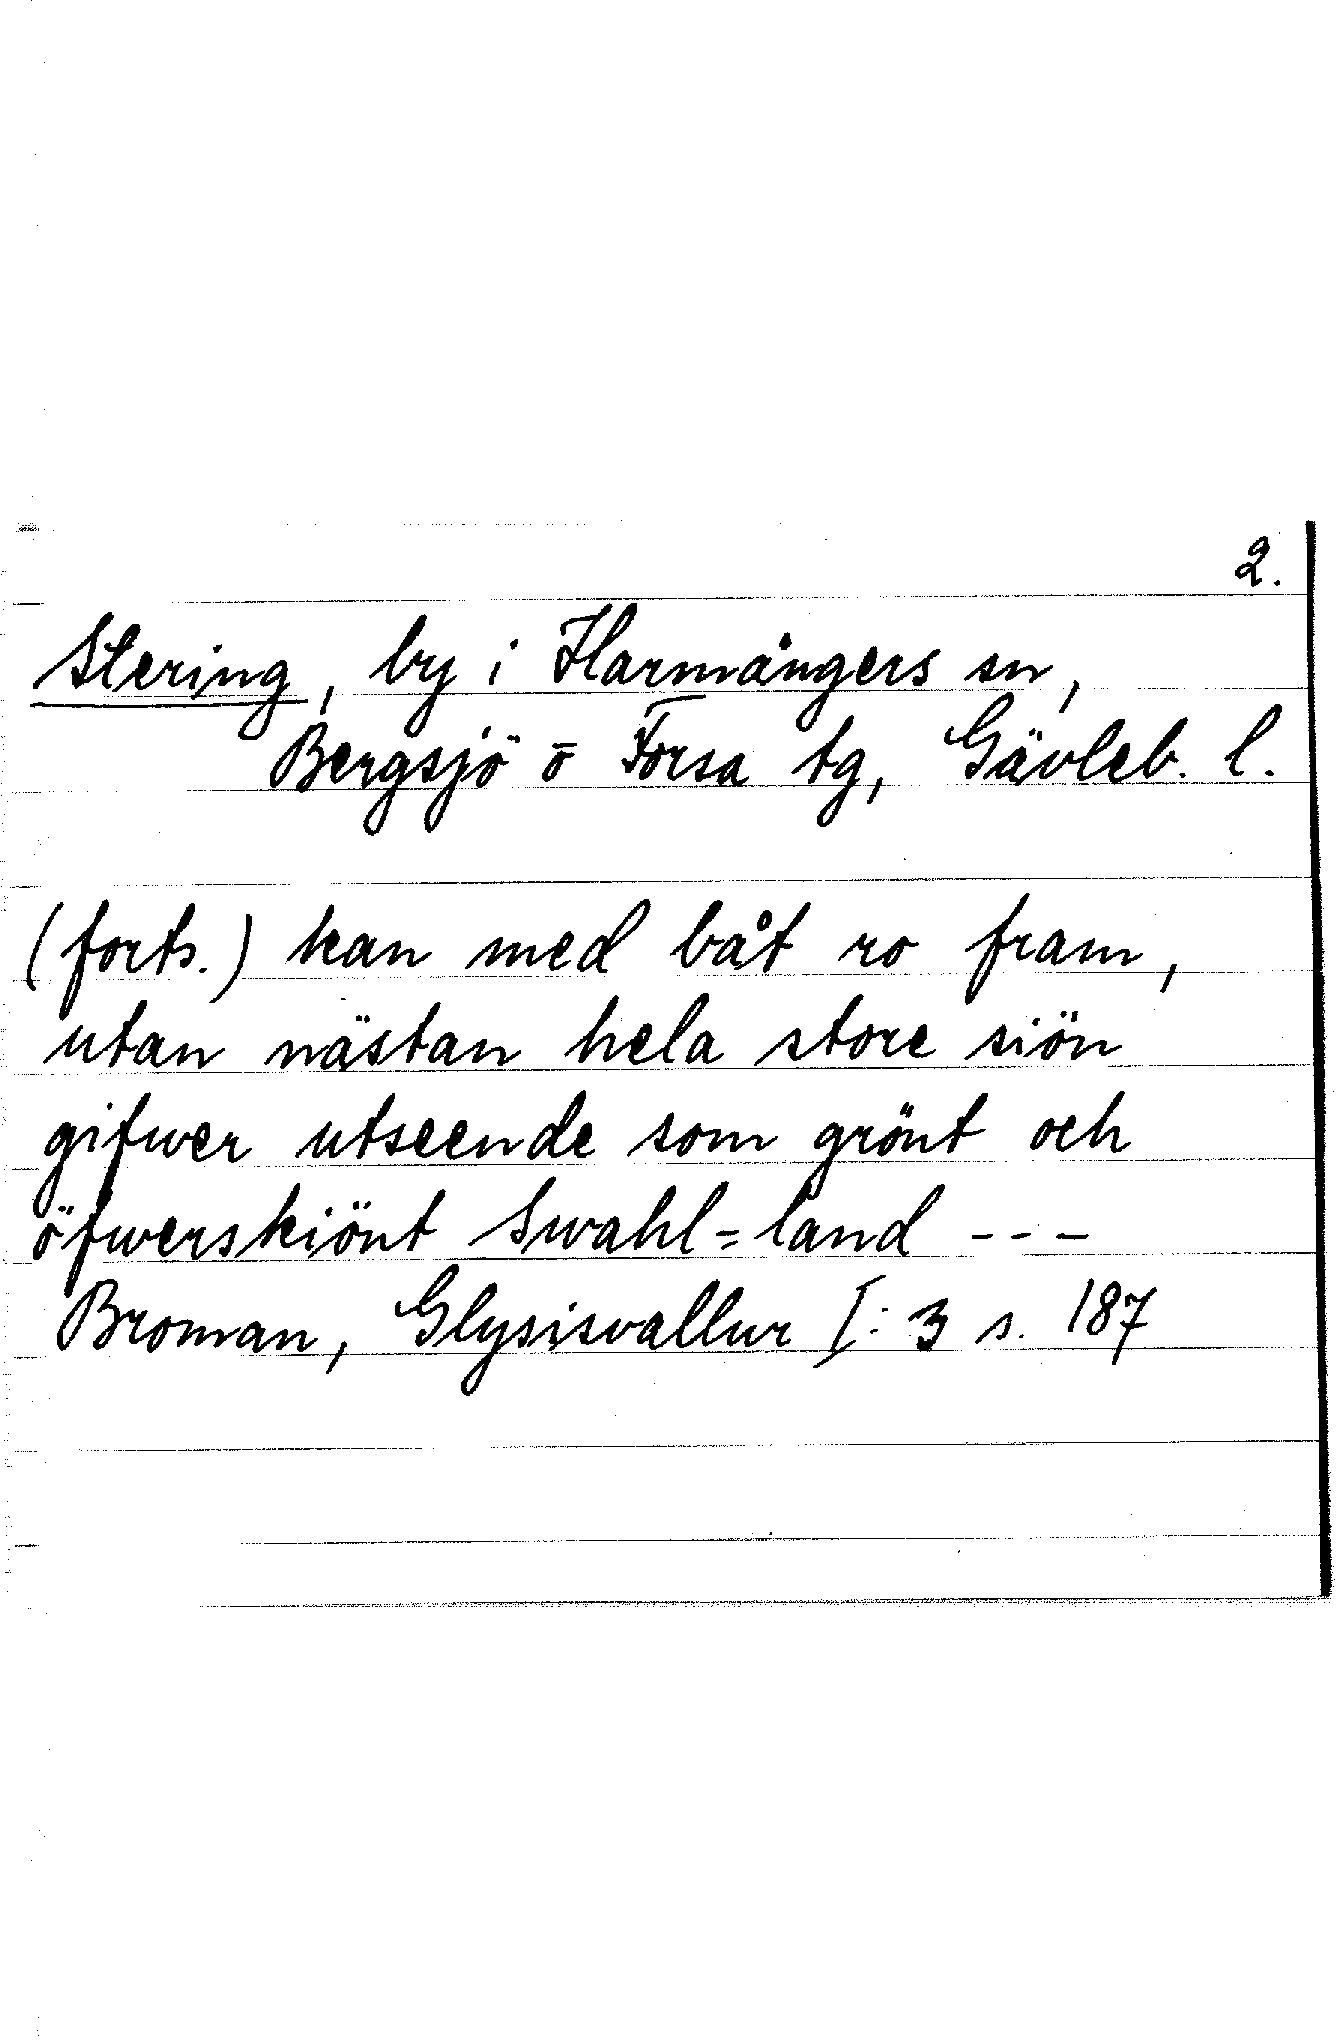 2.
Stering, by i Harmångers sn,
Bergsjö o̅ Forsa tg, Gävleb. l.
(forts.) kan med båt ro fram,
utan nästan hela store siön
gifwer utseende som grönt och
öfwerskiönt Swahl=land ---
Broman, Glysisvallur I: 3 s. 187